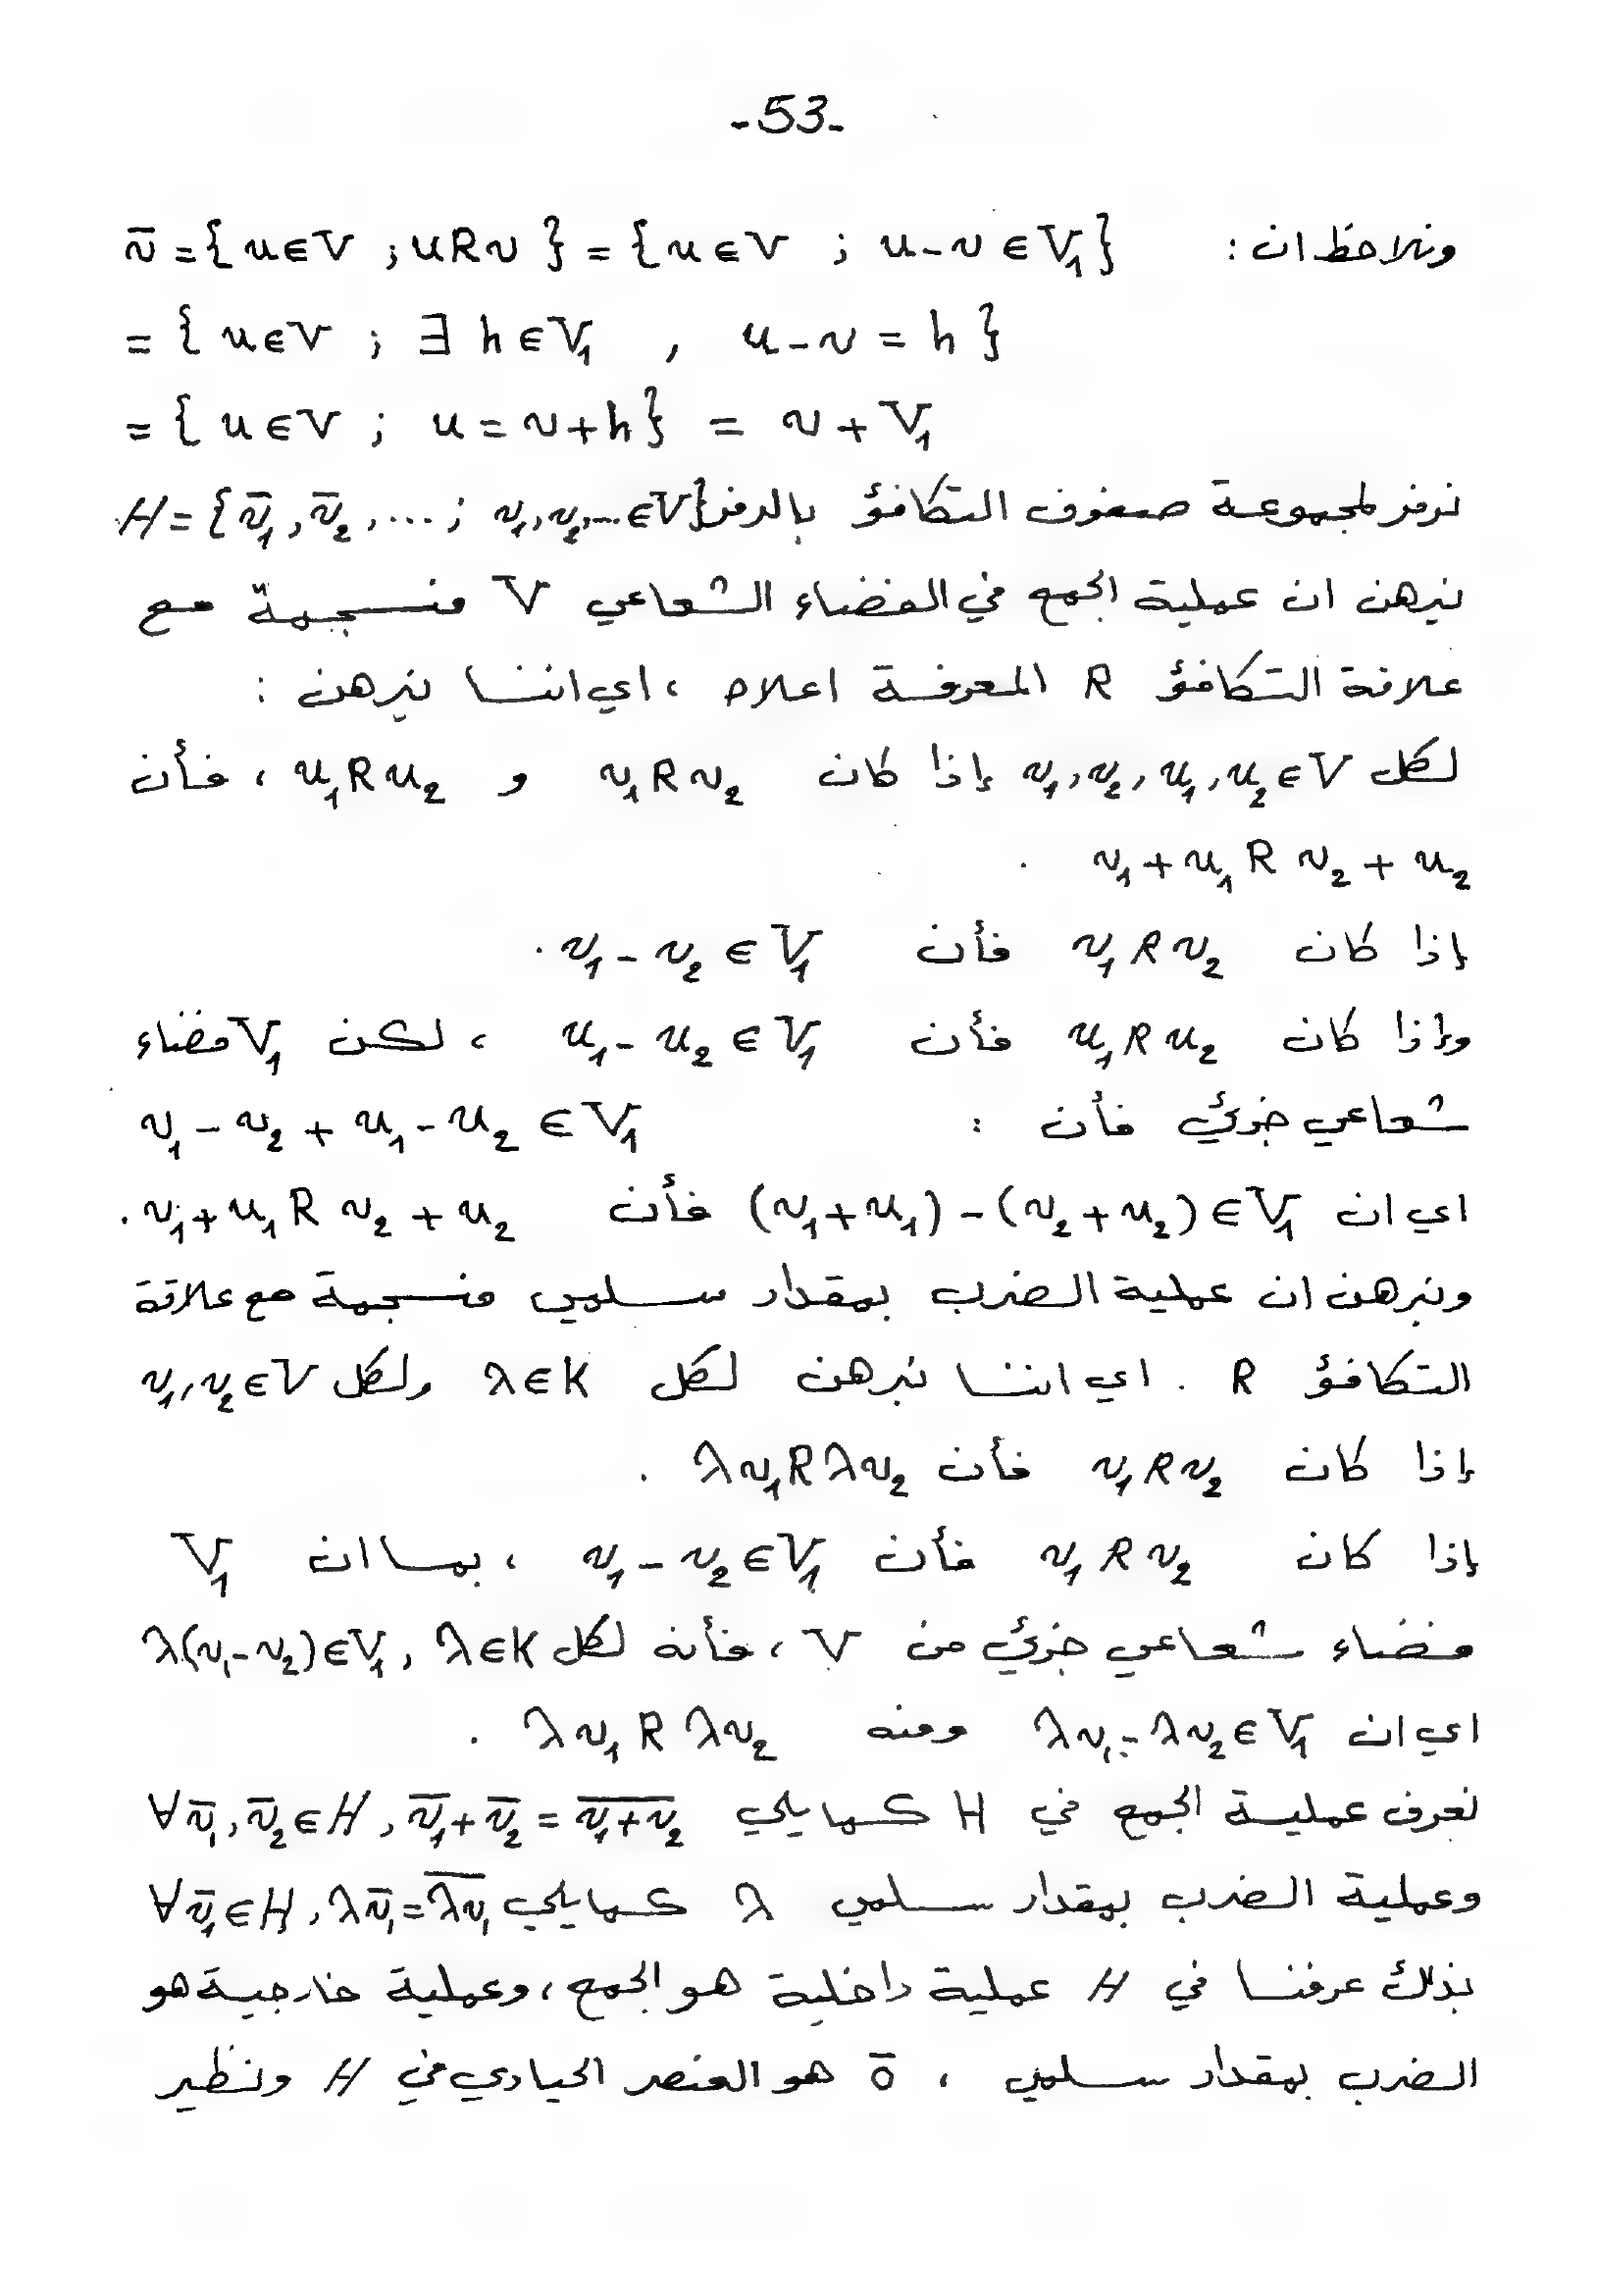 -53-
ونلاحظ ان : v̄ = {u∈V ; uRv} = {u∈V ; u-v∈V₁}
= {u∈V ; ∃ h∈V₁ , u-v = h}
= {u∈V ; u = v+h} = v + V₁
نرمز لمجموعة صفوف التكافؤ بالرمز H = {v̄₁, v̄₂, ... ; v₁, v₂, ... ∈V}
نبرهن ان عملية الجمع في الفضاء الشعاعي V منسجمة مع
علاقة التكافؤ R المعرفة اعلاه ، اي اننا نبرهن :
لكل v₁, v₂, u₁, u₂ ∈V إذا كان v₁Rv₂ و u₁Ru₂ ، فأن
v₁ + u₁ R v₂ + u₂ .
إذا كان v₁Rv₂ فأن v₁ - v₂ ∈ V₁ .
وإذا كان u₁Ru₂ فأن u₁ - u₂ ∈ V₁ ، لكن V₁ فضاء
شعاعي جزئي فأن : v₁ - v₂ + u₁ - u₂ ∈ V₁
اي ان (v₁+u₁) - (v₂+u₂) ∈V₁ فأن v₁+u₁ R v₂ + u₂ .
ونبرهن ان عملية الضرب بمقدار سلمي منسجمة مع علاقة
التكافؤ R . اي اننا نبرهن لكل λ∈K ولكل v₁, v₂∈V
إذا كان v₁Rv₂ فأن λv₁Rλv₂ .
إذا كان v₁Rv₂ فأن v₁ - v₂∈V₁ ، بما ان V₁
فضاء شعاعي جزئي من V ، فأنه لكل λ∈K , λ(v₁-v₂)∈V₁
اي ان λv₁ - λv₂∈V₁ ومنه λv₁ R λv₂ .
نعرف عملية الجمع في H كما يلي ∀ v̄₁, v̄₂∈H , v̄₁+v̄₂ = \overline{v₁+v₂}
وعملية الضرب بمقدار سلمي λ كما يلي ∀ v̄₁∈H , λv̄₁ = \overline{λv₁}
بذلك عرفنا في H عملية داخلية هو الجمع ، وعملية خارجية هو
الضرب بمقدار سلمي ، ō هو العنصر الحيادي في H ونظير